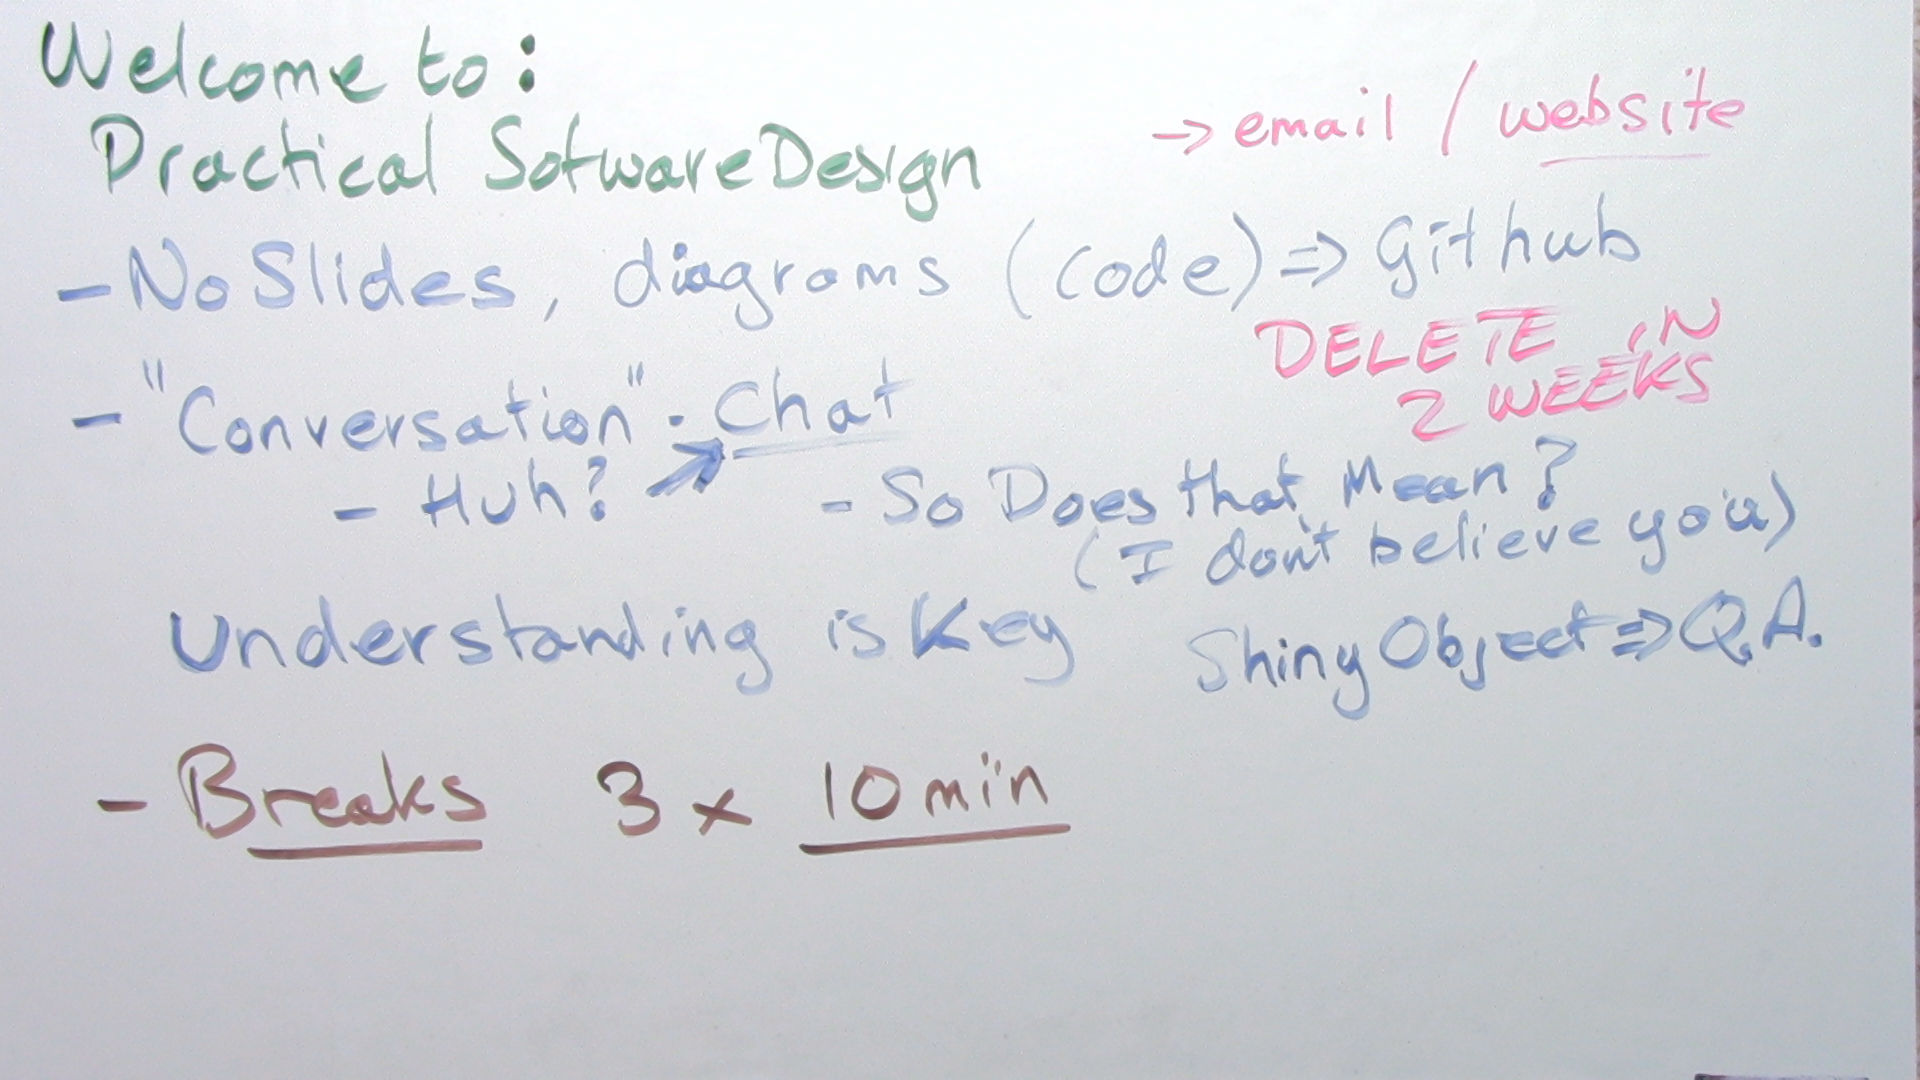 Welcome to:
Practical Sotware Design
→ email / website
- No Slides, diagrams (code) => Github
DELETE IN
2 WEEKS
- "Conversation" - Chat
- Huh? → - So Does that Mean?
(I don't believe you)
Understanding is Key
Shiny Object => Q.A.
- Breaks 3 x 10 min